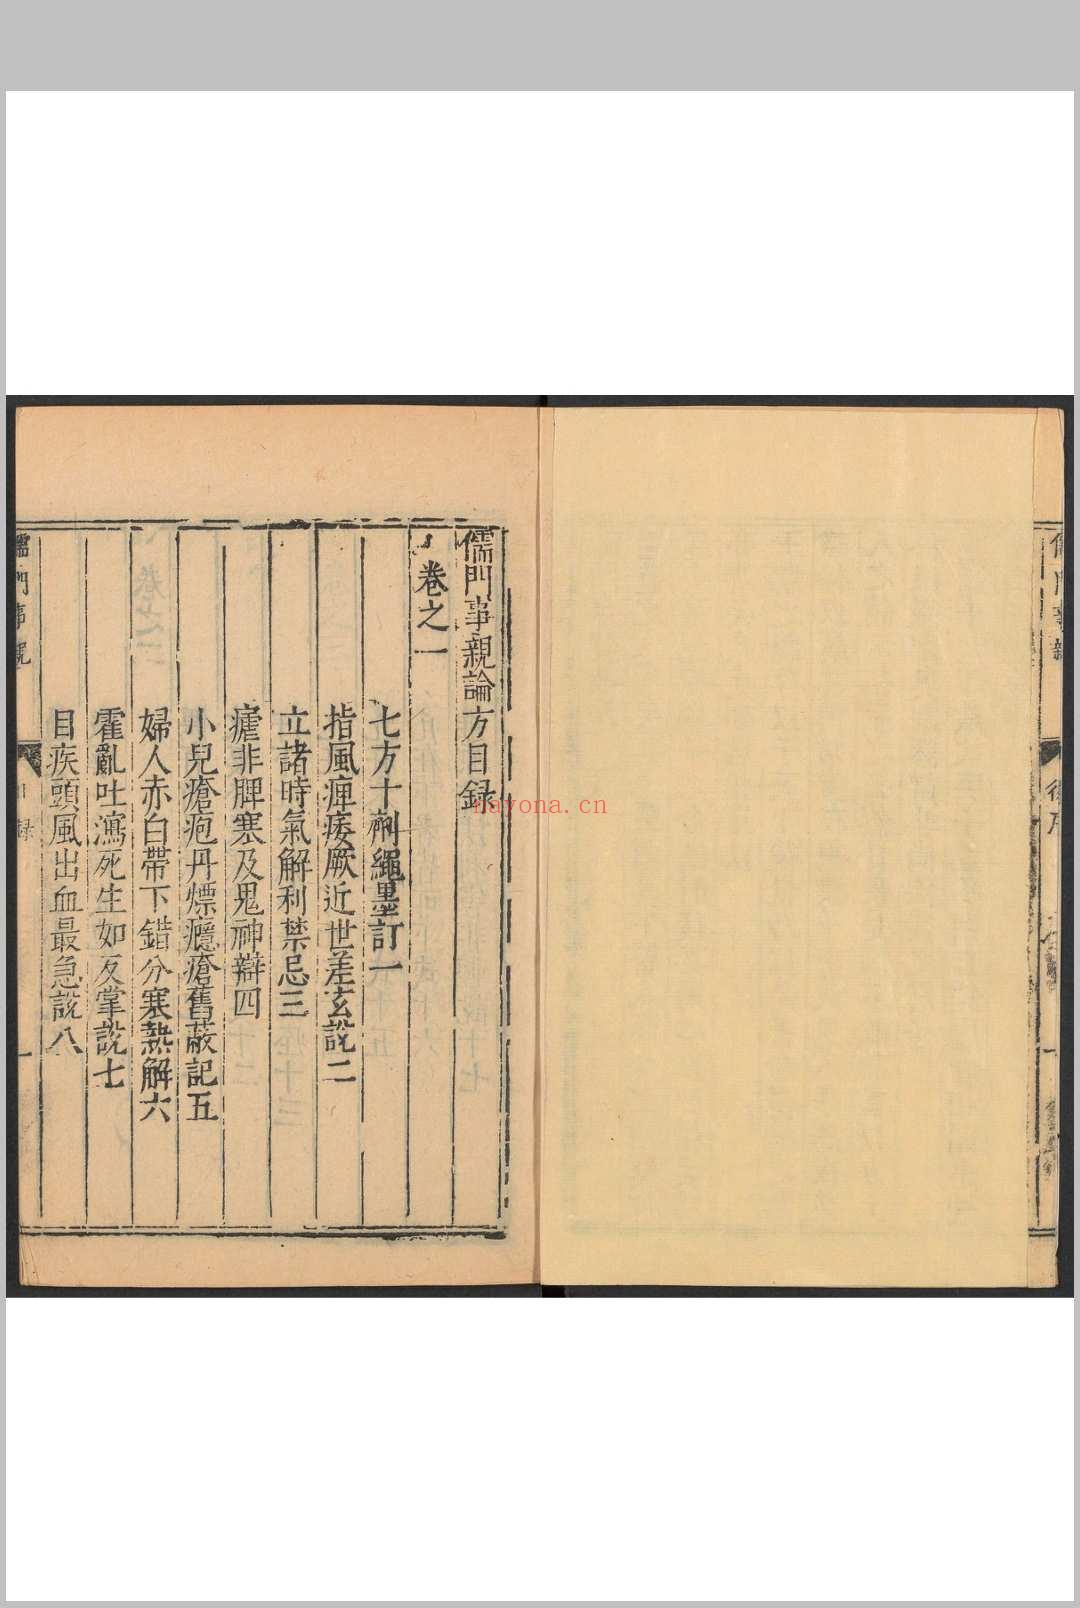 儒門事親論方目録
卷之一
七方十劑繩墨訂一
指風痺痿厥近世差玄説二
立諸時氣解利禁忌三
瘧非脾寒及鬼神辯四
小兒瘡疱丹熛癮瘡舊蔽記五
婦人赤白帶下錯分寒熱解六
霍亂吐瀉死生如反掌説七
目疾頭風出血最急説八
儒門事親
目録
一
nayona.cn